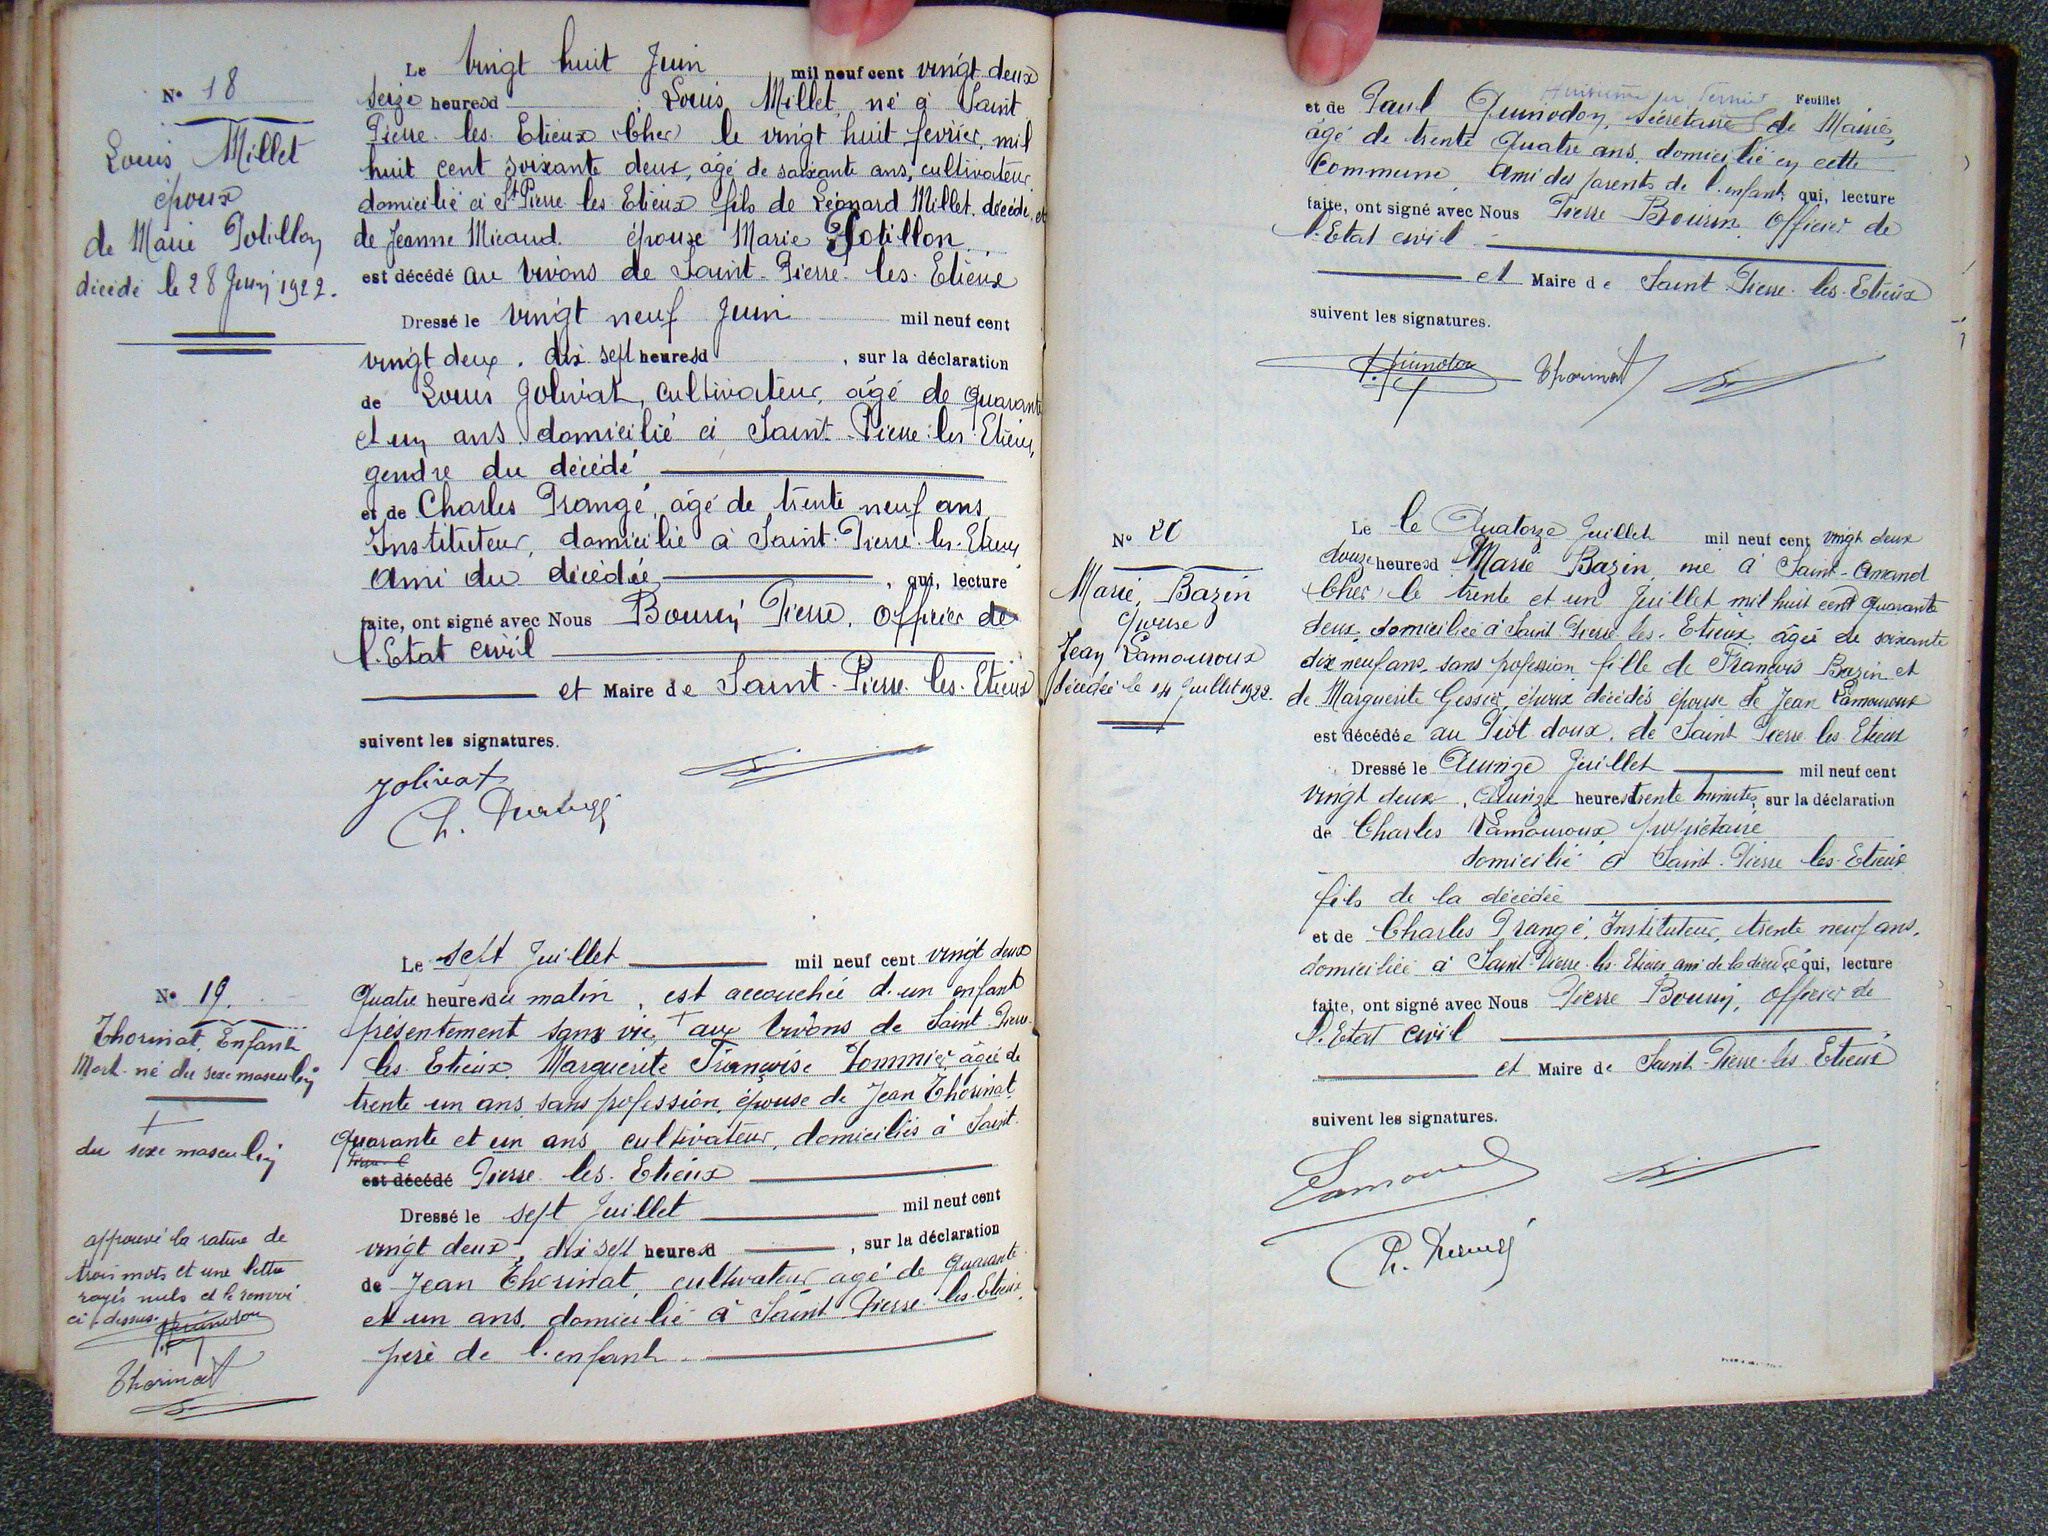 N° 18
Louis Millet
époux
de Marie Potillon
décédé le 28 Juin 1922.
Le vingt huit Juin mil neuf cent vingt deux
seize heures d Louis Millet, né à Saint
Pierre les Etieux (Cher) le vingt huit fevrier mil
huit cent soixante deux, âgé de soixante ans, cultivateur
domicilié à St Pierre les Etieux fils de Léonard Millet, décédé, et
de Jeanne Micaud. épouse Marie Potillon.
est décédé au vivons de Saint-Pierre-les-Etieux
Dressé le vingt neuf Juin mil neuf cent
vingt deux, dix sept heures d , sur la déclaration
de Louis Jolivat, cultivateur, âgé de quarante
et un ans, domicilié à Saint-Pierre-les-Etieux,
gendre du décédé
et de Charles Prangé, âgé de trente neuf ans
Instituteur, domicilié à Saint-Pierre-les-Etieux
ami du décédée , qui, lecture
faite, ont signé avec Nous Bourin Pierre, officier de
l'Etat civil
et Maire de Saint-Pierre-les-Etieux
suivent les signatures.
Jolivat
N° 19.
Thorinat, Enfant
Mort-né du sexe masculin
+
du sexe masculin
approuvé la rature de
trois mots et une lettre
rayés nuls et le renvoi
ci-dessus.
Thorinat
Le sept Juillet mil neuf cent vingt deux
Quatre heures du matin, est accouchée d'un enfant
présentement sans vie, + aux vivons de Saint-Pierre
les Etieux, Marguerite Françoise âgée de
trente un ans, sans profession, épouse de Jean Thorinat
quarante et un ans, cultivateur, domiciliés à Saint
est décédé Pierre-les-Etieux
Dressé le sept Juillet mil neuf cent
vingt deux, dix sept heures d , sur la déclaration
de Jean Thorinat, cultivateur agé de quarante
et un ans, domicilié à Saint-Pierre-les-Etieux,
père de l'enfant
Feuillet
et de Paul Quinodon, sécrétaire de Mairie,
âgé de trente Quatre ans, domicilié en cette
Commune, Ami des parents de l'enfant, qui, lecture
faite, ont signé avec Nous Pierre Bourin, Officier de
l'Etat civil
et Maire de Saint-Pierre-les-Etieux
suivent les signatures.
P. Quinodon Thorinat
N° 20
Marie Bazin
épouse
Jean Lamouroux
décédée le 14 Juillet 1922.
Le le Quatorze Juillet mil neuf cent vingt deux
douze heures d Marie Bazin, née à Saint-Amand
(Cher) le trente et un Juillet mil huit cent quarante
deux, domiciliée à Saint-Pierre-les-Etieux, âgée de soixante
dix neuf ans, sans profession, fille de François Bazin et
de Marguerite Gessier, époux décédés, épouse de Jean Lamouroux
est décédée au Piot doux, de Saint Pierre les Etieux
Dressé le Quinze Juillet mil neuf cent
vingt deux, Quinze heures trente minutes, sur la déclaration
de Charles Lamouroux, propriétaire
domicilié à Saint-Pierre les-Etieux
fils de la décédée
et de Charles Prangé, Instituteur, trente neuf ans,
domicilié à Saint-Pierre-les-Etieux, ami de la décédée qui, lecture
faite, ont signé avec Nous Pierre Bourin, Officier de
l'Etat civil
et Maire de Saint-Pierre-les-Etieux
suivent les signatures.